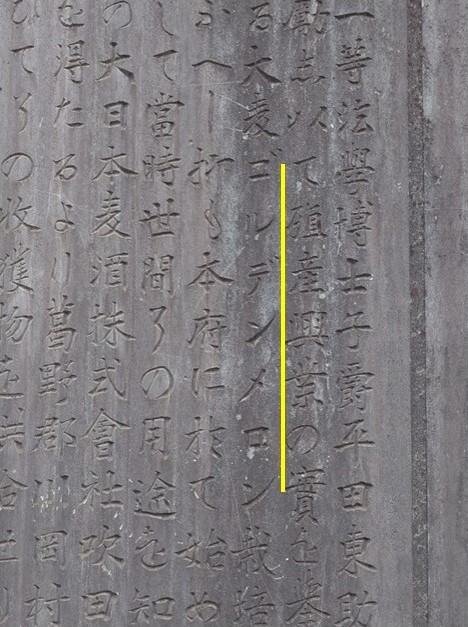 一等法學博士子爵平田東助
勵志以て殖産興業の實を擧
る大麦ゴルデンメロン栽培
ふへし抑〻本府に於て始め
して當時世間了の用途を知
の大日本麦酒株式會社吹田
を得たるより葛野郡川岡村
ひて了の收獲物を共合